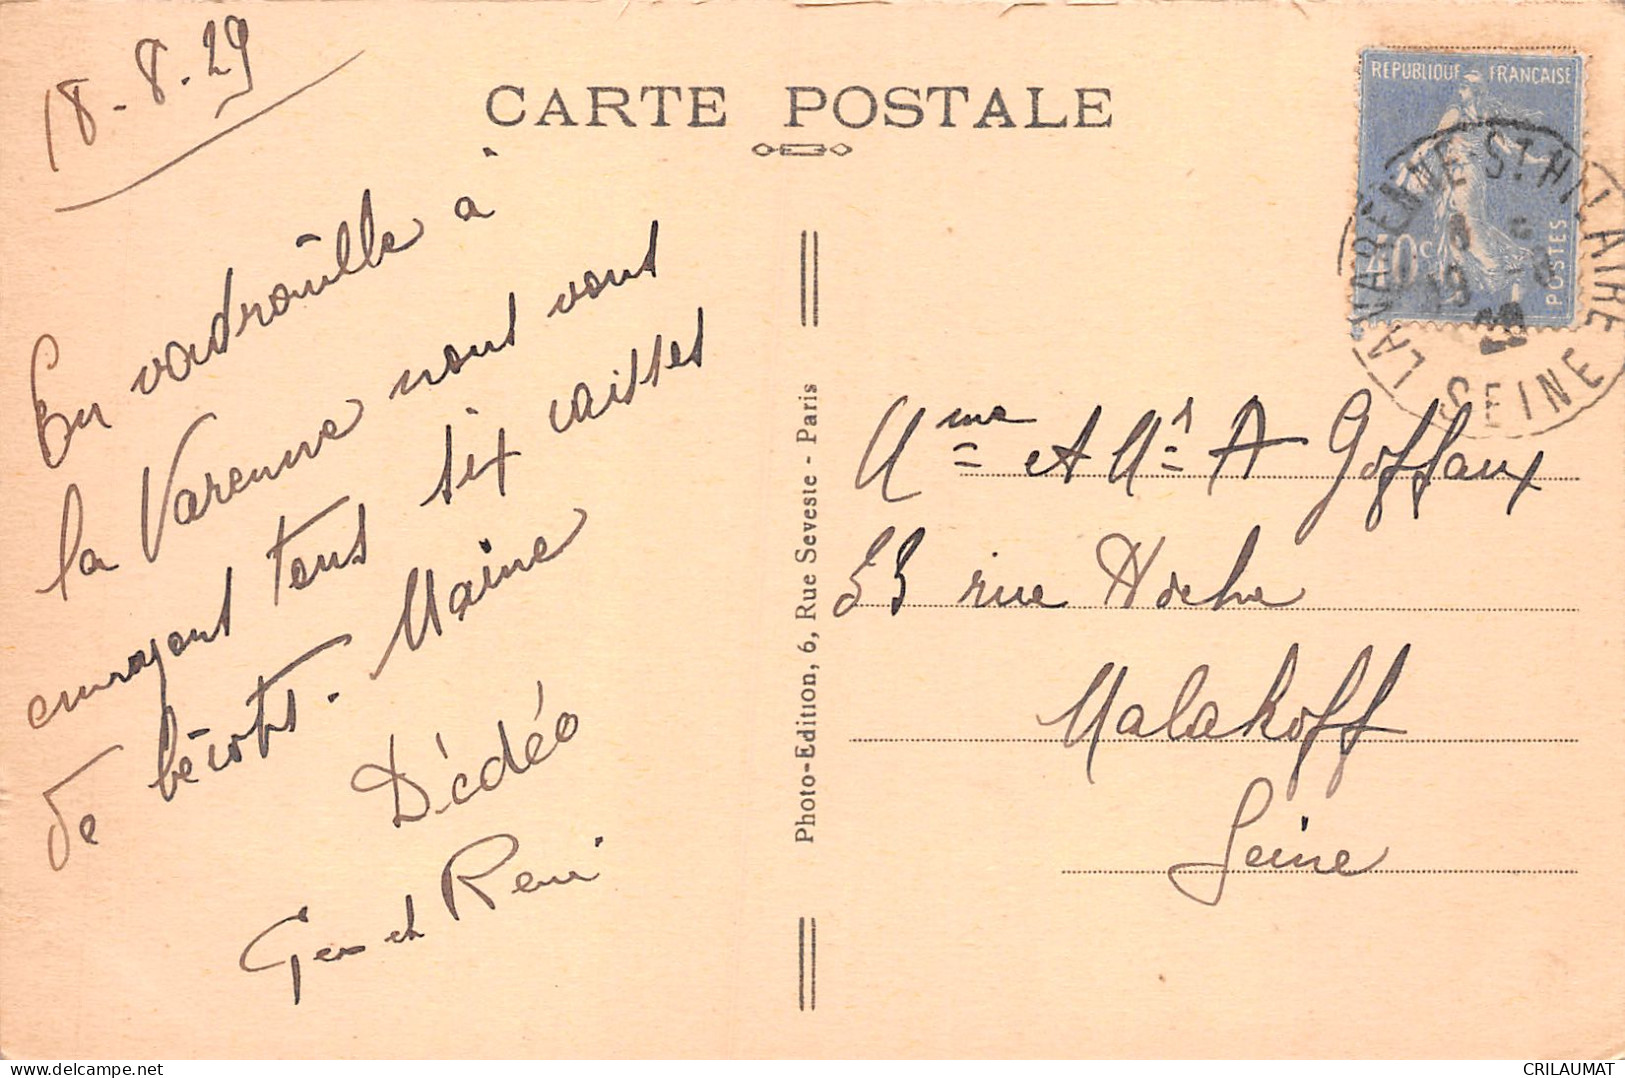 18-8-29
CARTE POSTALE
En vadrouille à
la Varenne nous vous
envoyons tous six caisses
de bécots. Maine
Dédéo
Gen et René
Photo-Edition, 6, Rue Seveste - Paris
REPUBLIQUE FRANÇAISE
40c
POSTES
LA VARENNE-ST HILAIRE
19 -8
29
SEINE
Mme et Mr A Goffaux
53 rue Hoche
Malakoff
Seine
delcampe.net
CRILAUMAT